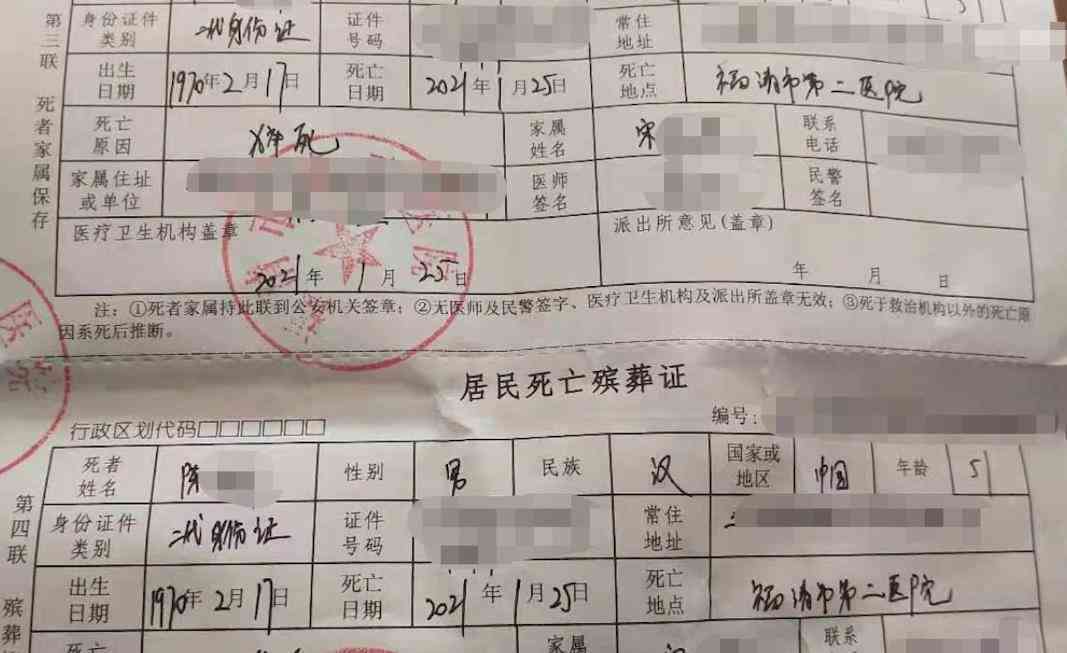 第三联 死者家属保存
身份证件类别 二代身份证 证件号码 常住地址
出生日期 1970年2月17日 死亡日期 2021年1月25日 死亡地点 福清市第二医院
死亡原因 猝死 家属姓名 宋 联系电话
家属住址或单位 医师签名 民警签名
医疗卫生机构盖章 派出所意见(盖章)
2021年1月25日 年 月 日
注：①死者家属持此联到公安机关签章；②无医师及民警签字、医疗卫生机构及派出所盖章无效；③死于救治机构以外的死亡原
因系死后推断。
居民死亡殡葬证
行政区划代码□□□□□□ 编号：
第四联 殡葬
死者姓名 陈 性别 男 民族 汉 国家或地区 中国 年龄 5
身份证件类别 二代身份证 证件号码 常住地址
出生日期 1970年2月17日 死亡日期 2021年1月25日 死亡地点 福清市第二医院
死亡 家属 联系